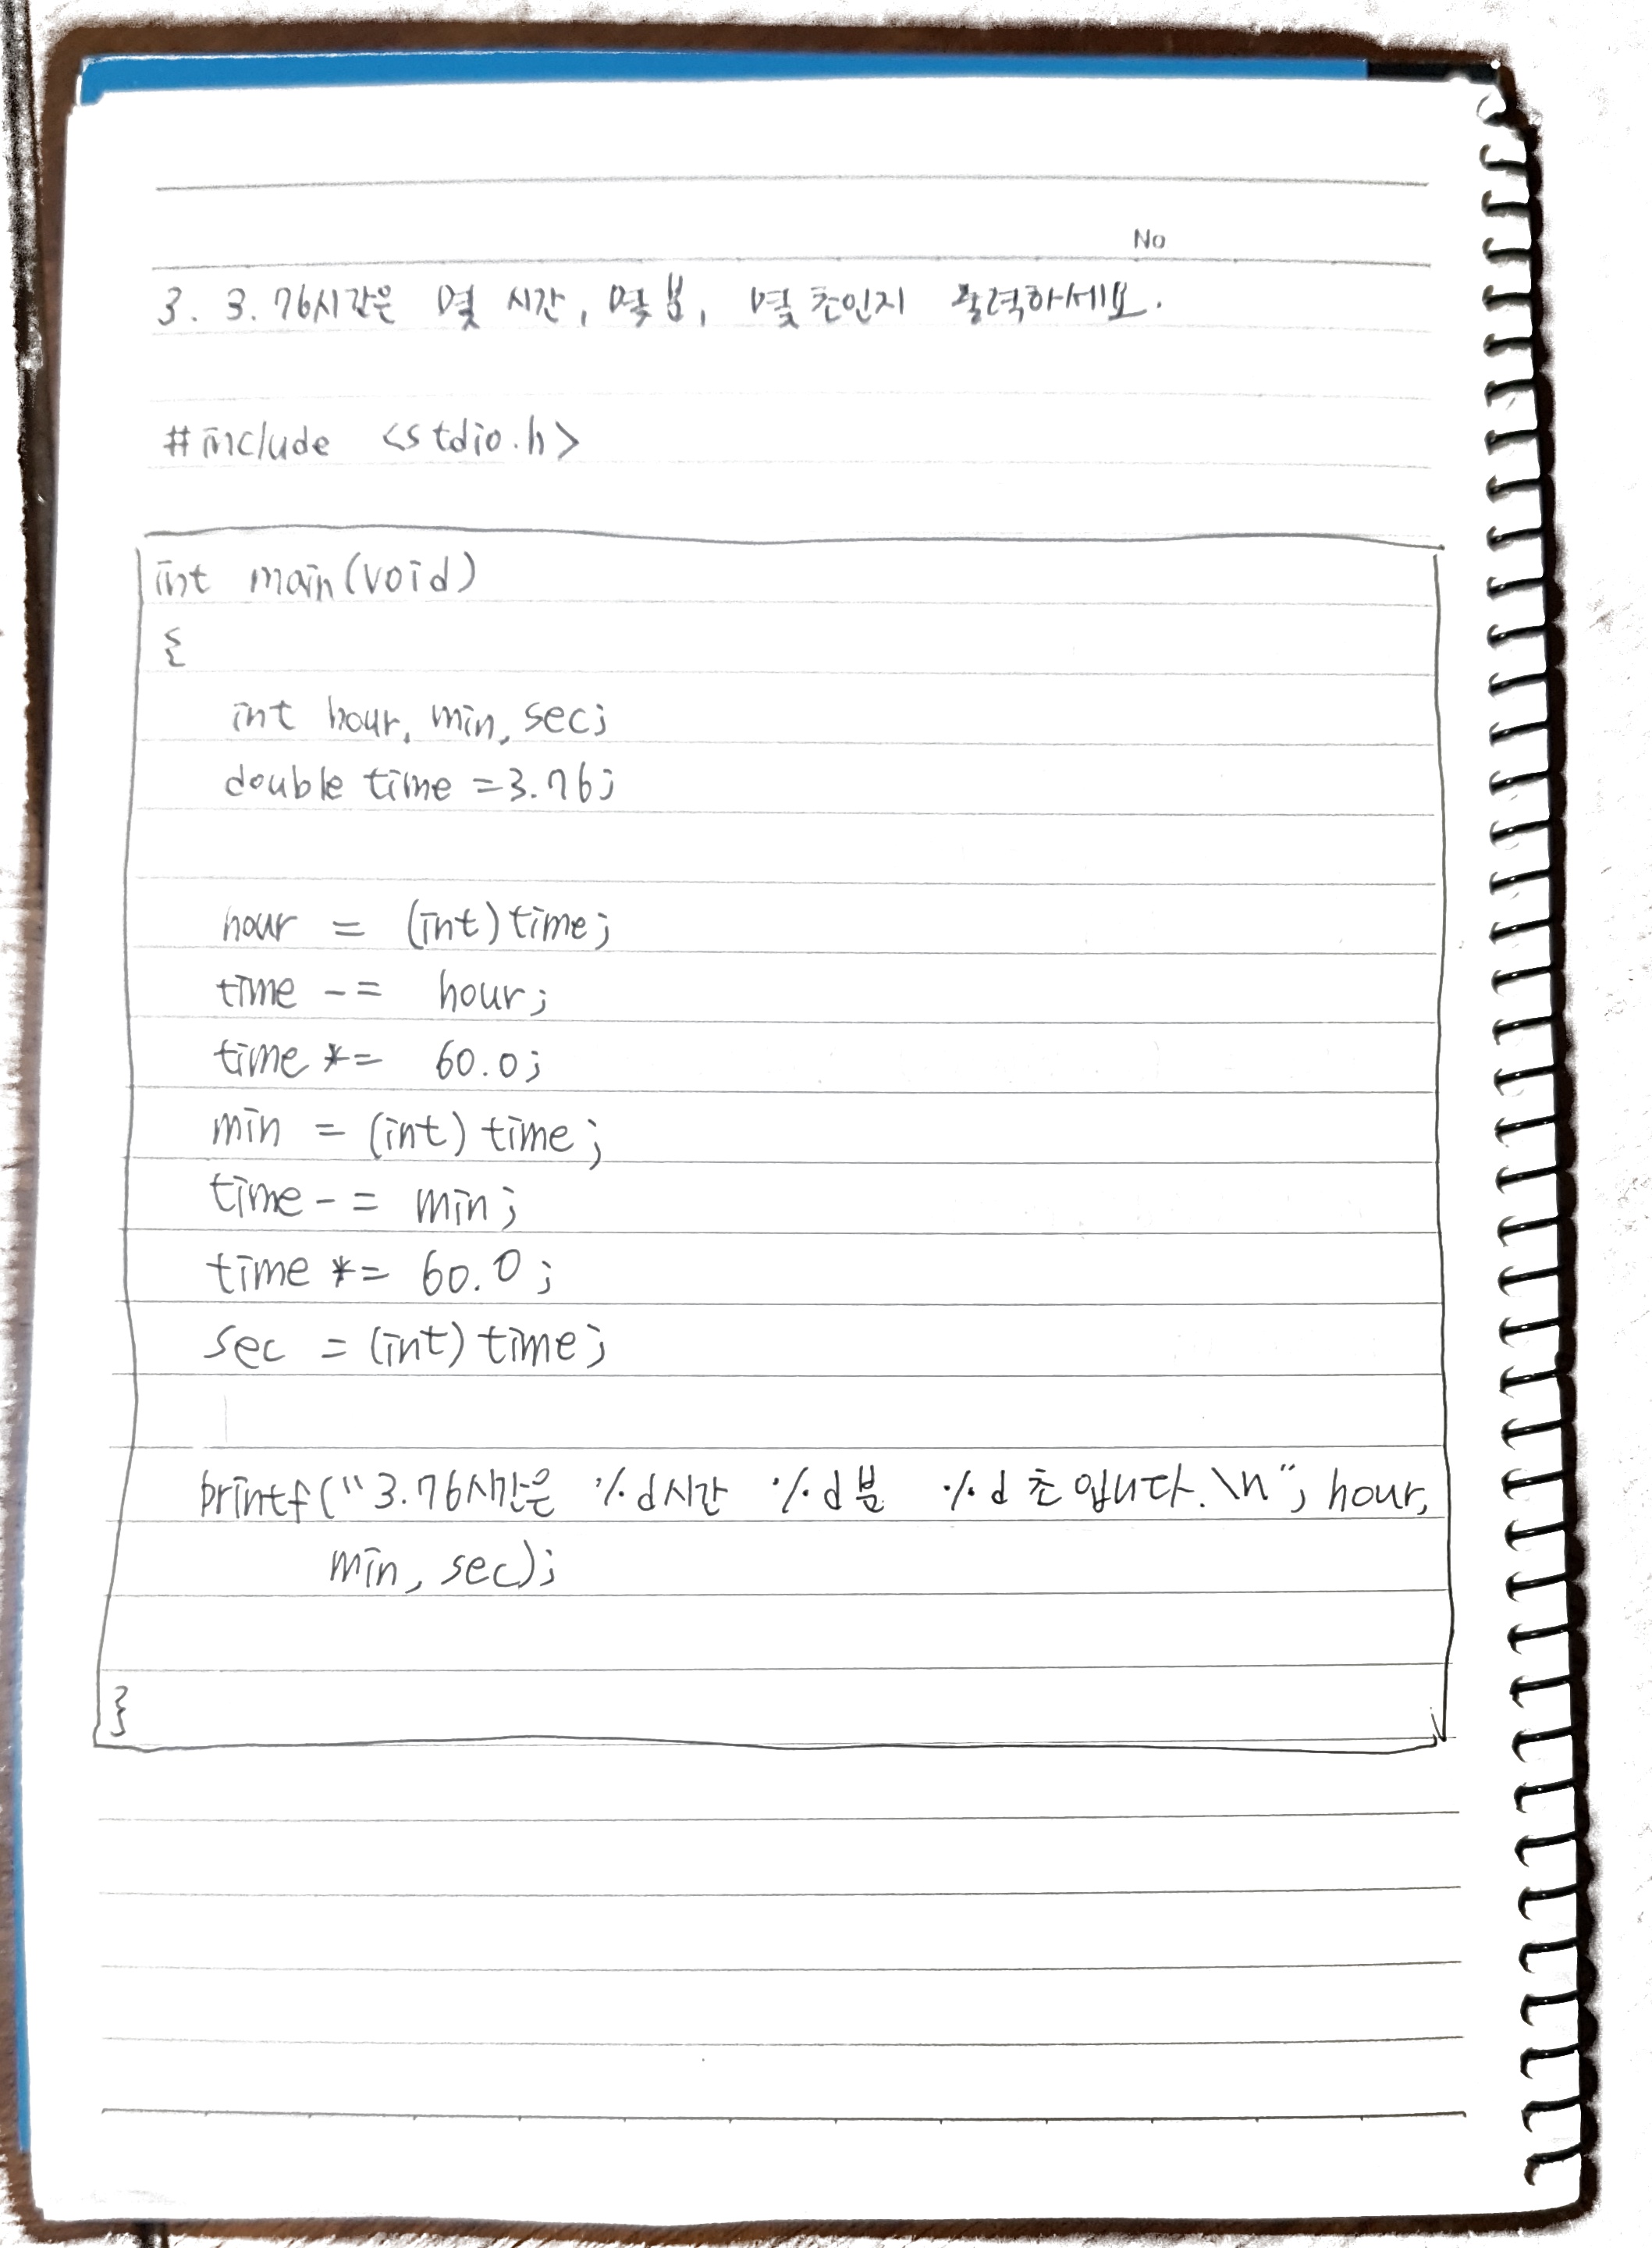 No
3. 3.76시간은 몇 시간, 몇 분, 몇 초인지 출력하세요.
#include <stdio.h>
int main(void)
{
int hour, min, sec;
double time = 3.76;
hour = (int) time;
time -= hour;
time *= 60.0;
min = (int) time;
time -= min;
time *= 60.0;
sec = (int) time;
printf("3.76시간은 %d시간 %d분 %d초입니다.\n"; hour,
min, sec);
}